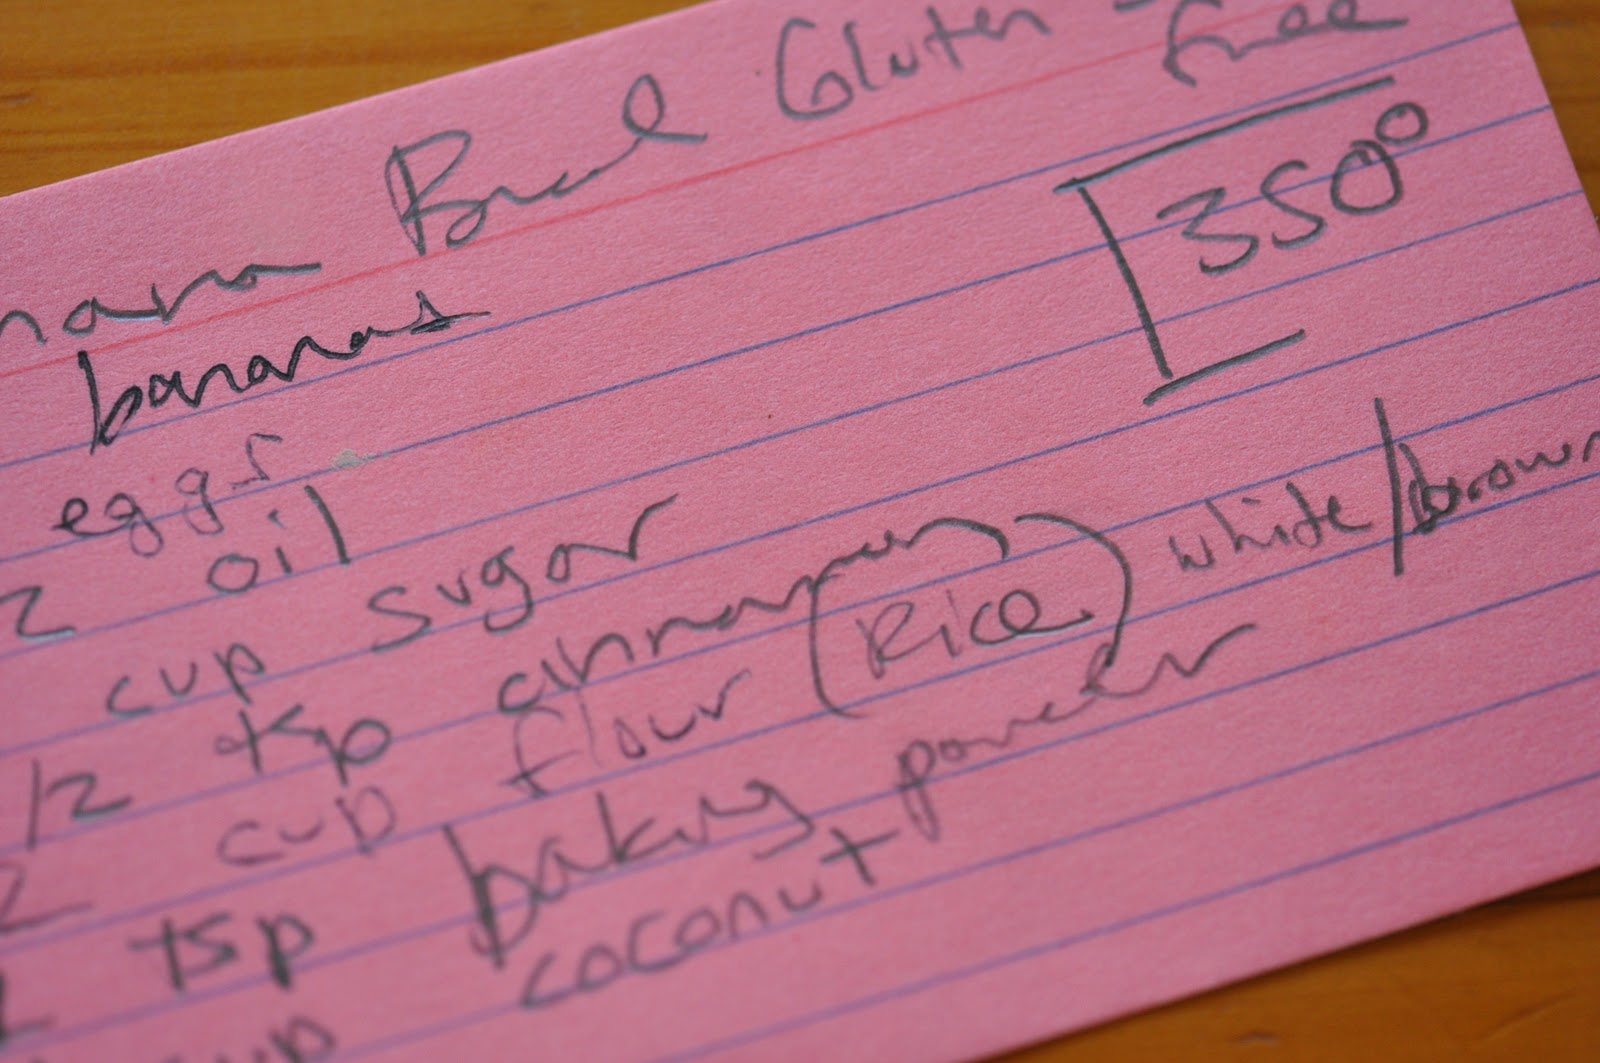 nana Bread Gluten-Free
350°
bananas
eggs
2 oil
cup sugar
1/2 tsp cinnamon
2 cup flour (Rice) white/brown
tsp baking powder
cup coconut